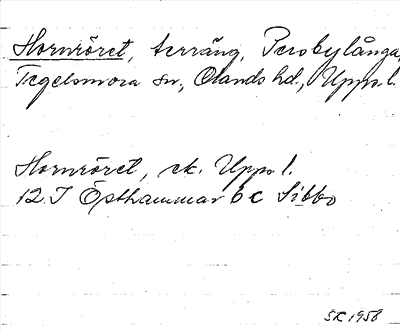 Hornröret, terräng, Persbylånga,
Tegelsmora sn, Olands hd, Upps. l.
Hornröret, ek. Upps l.
12. I Östhammar 6 c Sibbo
SK 1958